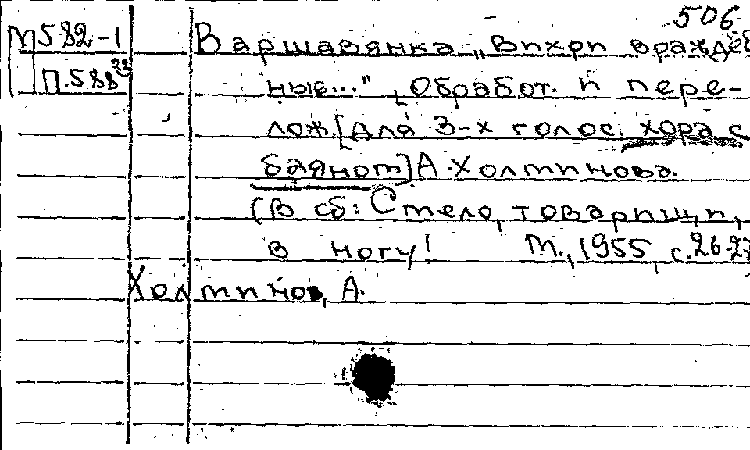 506
М582-1
Варшавянка „Вихри враждеб
П.588²²
ные..." [Обработ. и пере-
лож. [для 3-х голос. хора с
баяном] А. Холминова.
(В сб: Смело, товарищи,
в ногу! М., 1955, с. 26-27
Холминов, А.